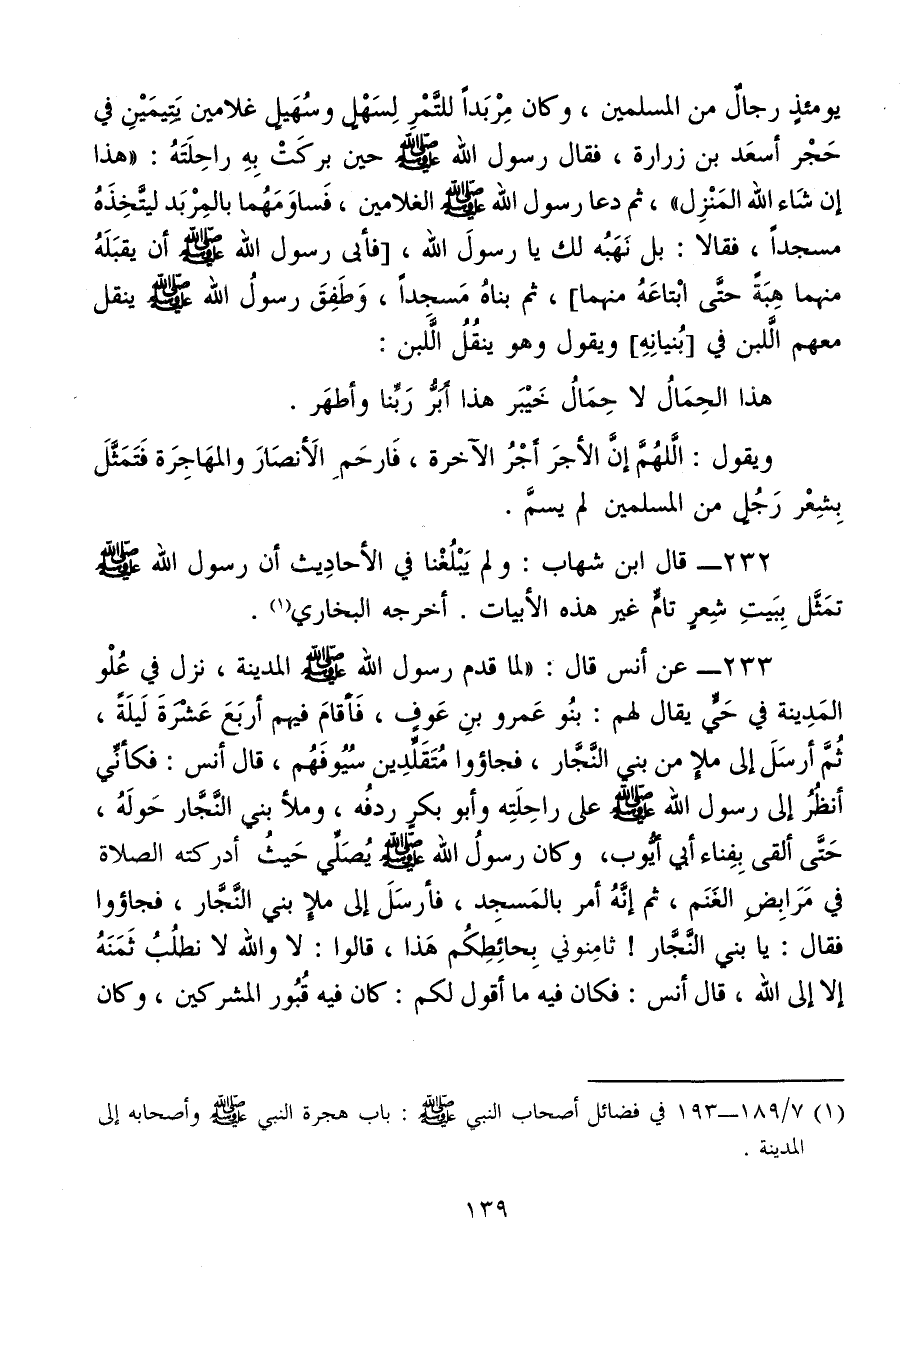 يومئذٍ رجالٌ من المسلمين ، وكان مِرْبَداً للتَّمْرِ لِسَهْلٍ وسُهَيلٍ غلامين يَتِيمَيْنِ في
حَجْر أسعَد بن زرارة ، فقال رسول الله ﷺ حين بركَتْ بِهِ راحِلَتَهُ : «هذا
إن شَاء الله المَنْزِل» ، ثم دعا رسول الله ﷺ الغلامين ، فَساوَمَهُما بالمِرْبَد ليتَّخِذَهُ
مسجداً ، فقالا : بل نَهَبُه لك يا رسولَ الله ، [فأبى رسول الله ﷺ أن يقبَلَهُ
منهما هِبَةً حتَّى ابْتاعَهُ منهما] ، ثم بناهُ مَسجِداً ، وَطَفِقَ رسولُ الله ﷺ ينقل
معهم اللَّبن في [بُنيانِهِ] ويقول وهو ينقُلُ اللَّبن :
هذا الحِمَالُ لا حِمَالُ خَيْبَر هذا أَبَرُّ رَبِّنا وأطهَر .
ويقول : اللَّهُمَّ إنَّ الأجرَ أجْرُ الآخرة ، فَارحَمِ الَأنصَارَ والمهَاجِرَة فَتَمَثَّلَ
بِشِعْر رَجُلٍ من المسلمين لم يسمَّ .
٢٣٢ــ قال ابن شهاب : ولم يَبْلُغْنا في الأحادِيث أن رسول الله ﷺ
تمَثَّل بِبَيتِ شعرٍ تامٍّ غير هذه الأبيات . أخرجه البخاري(١) .
٢٣٣ــ عن أنس قال : «لما قدم رسول الله ﷺ المدينة ، نزل في عُلْو
المَدِينة في حَيٍّ يقال لهم : بنُو عَمرو بنِ عَوفٍ ، فَأَقامَ فيهم أربَعَ عَشْرَةَ لَيلَةً ،
ثُمَّ أرسَلَ إلى ملإ من بني النَّجَّار ، فجاؤوا مُتَقَلِّدِين سيُوفَهُم ، قال أنس : فكأنِّي
أنظُرُ إلى رسول الله ﷺ على راحِلَتِه وأبو بكرٍ ردفُه ، وملأ بني النَّجَّار حَولَهُ ،
حَتَّى ألقى بِفِناء أبي أيُّوب، وكان رسولُ الله ﷺ يُصَلِّي حَيثُ أدركته الصلاة
في مَرَابِضِ الغَنَم ، ثم إنَّهُ أمر بالمَسجِد ، فأرسَلَ إلى ملإ بني النَّجَّار ، فجاؤوا
فقال : يا بني النَّجَّار ! ثامِنوني بِحائِطِكُم هَذا ، قالوا : لا والله لا نطلُبُ ثَمَنَهُ
إلا إلى الله ، قال أنس : فكان فيه ما أقول لكم : كان فيه قُبُور المشركين ، وكان
(١) ١٨٩/٧ــ١٩٣ في فضائل أصحاب النبي ﷺ : باب هجرة النبي ﷺ وأصحابه إلى
المدينة .
١٣٩